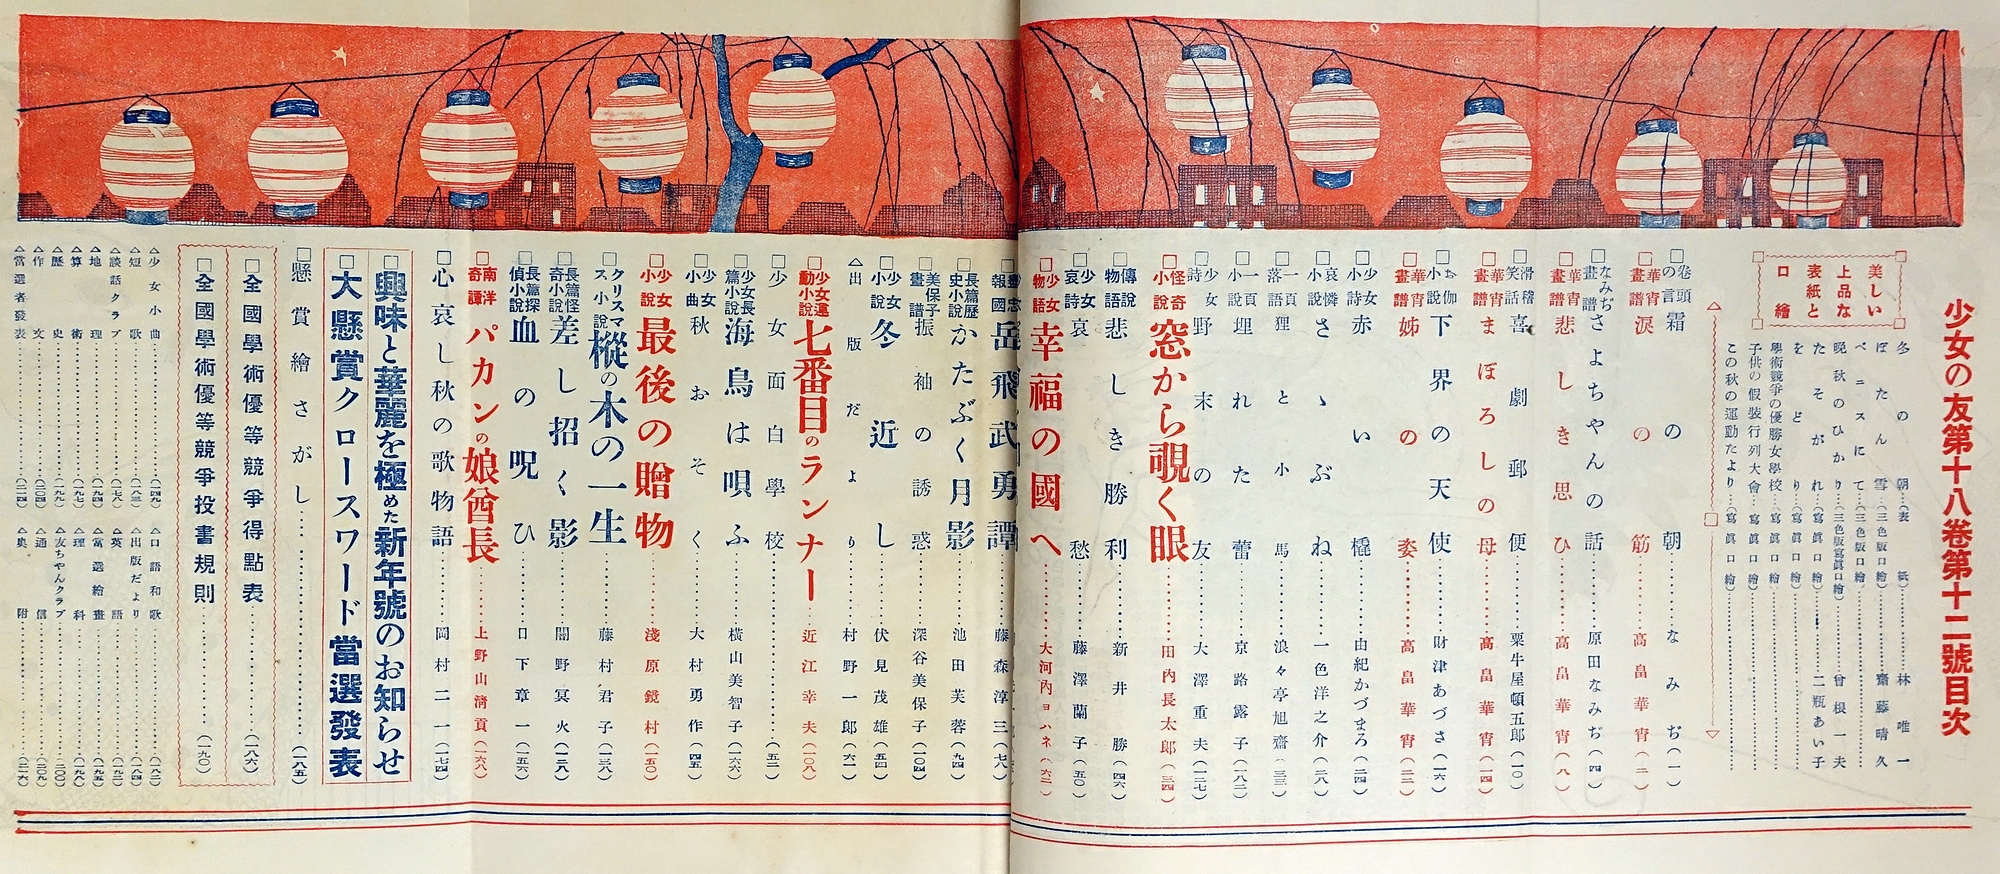 少女の友第十八卷第十二號目次
美しい
上品な
表紙と
口繪
冬の朝…(表紙)……林唯一
ぼたん雪…(三色版口繪)……齋藤晴久
ベニスにて…(三色版口繪)
晩秋のひかり…(三色版寫眞口繪)……曾根一夫
たそがれ…(寫眞口繪)……二瓶あい子
をどり…(寫眞口繪)
學術競爭の優勝女學校…寫眞口繪
子供の假裝行列大會…(寫眞口繪)
この秋の運動たより…(寫眞口繪)
卷頭の言 霜の朝……なみぢ(一)
華宵畫譜 涙の筋……高畠華宵(二)
なみぢ畫譜 さよちやんの話……原田なみぢ(四)
華宵畫譜 悲しき思ひ……高畠華宵(八)
滑稽笑話 喜劇郵便……栗牛屋頓五郎(一〇)
華宵畫譜 まぼろしの母……高畠華宵(一四)
お伽小說 下界の天使……財津あづさ(一六)
華宵畫譜 姉の姿……高畠華宵(二二)
少女詩 赤い橇……由紀かづまろ(二四)
哀憐小說 さゝぶね……一色洋之介(二八)
一頁落語 狸と小馬……浪々亭旭齋(三三)
一頁小說 埋れた蕾……京路露子(一八二)
少女詩 野末の友……大澤重夫(一二七)
怪奇小說 窓から覗く眼……田內長太郎(三四)
傳說物語 悲しき勝利……新井勝(四六)
少女哀詩 哀愁……藤澤蘭子(五〇)
少女物語 幸福の國へ……大河內ヨハネ(六二)
盡忠報國 岳飛武勇譚……藤森淳三(七八)
長篇歷史小說 かたぶく月影……池田芙蓉(九四)
美保子畫譜 振袖の誘惑……深谷美保子(一〇四)
少女小說 冬近し……伏見茂雄(五四)
△出版だより……村野一郞(六一)
少女運動小說 七番目のランナー……近江幸夫(一〇八)
少女面白學校……(五二)
少女長篇小說 海鳥は唄ふ……橫山美智子(一六六)
少女小曲 秋おそく……大村勇作(四五)
少女小說 最後の贈物……淺原鏡村(一五〇)
クリスマス小說 樅の木の一生……藤村君子(一三八)
長篇怪奇小說 差し招く影……闇野冥火(一二八)
長篇探偵小說 血の呪ひ……口下章一(一五六)
南洋奇譚 パカンの娘酋長……上野山淸貢(一六八)
心哀し秋の歌物語……岡村二一(一七四)
興味と華麗を極めた新年號のお知らせ
大懸賞クロースワード當選發表
懸賞繪さがし……(一八五)
全國學術優等競爭得點表……(一八六)
全國學術優等競爭投書規則……(一九〇)
△少女小曲……(一四九)
△短歌……(一八三)
△談話クラブ……(一七八)
△地理……(一九四)
△算術……(一九七)
△歷史……(一九九)
△作文……(二〇四)
△當選者發表……(二一四)
△口語和歌……(一八二)
△出版だより……(一八四)
△英語……(一九二)
△當選繪畫……(一九五)
△理科……(一九八)
△友ちやんクラブ……(二〇〇)
△通信……(二〇九)
△奧附……(二一六)